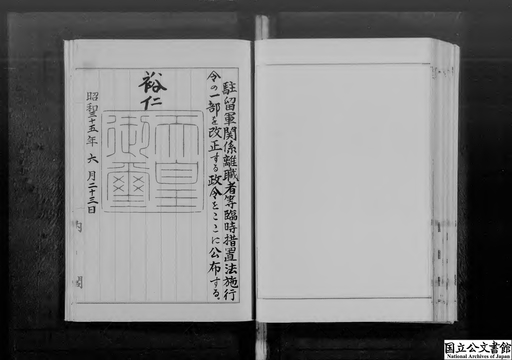 駐留軍関係離職者等臨時措置法施行
令の一部を改正する政令をここに公布する。
裕仁
天皇
御璽
昭和三十五年六月二十三日
内閣
国立公文書館
National Archives of Japan